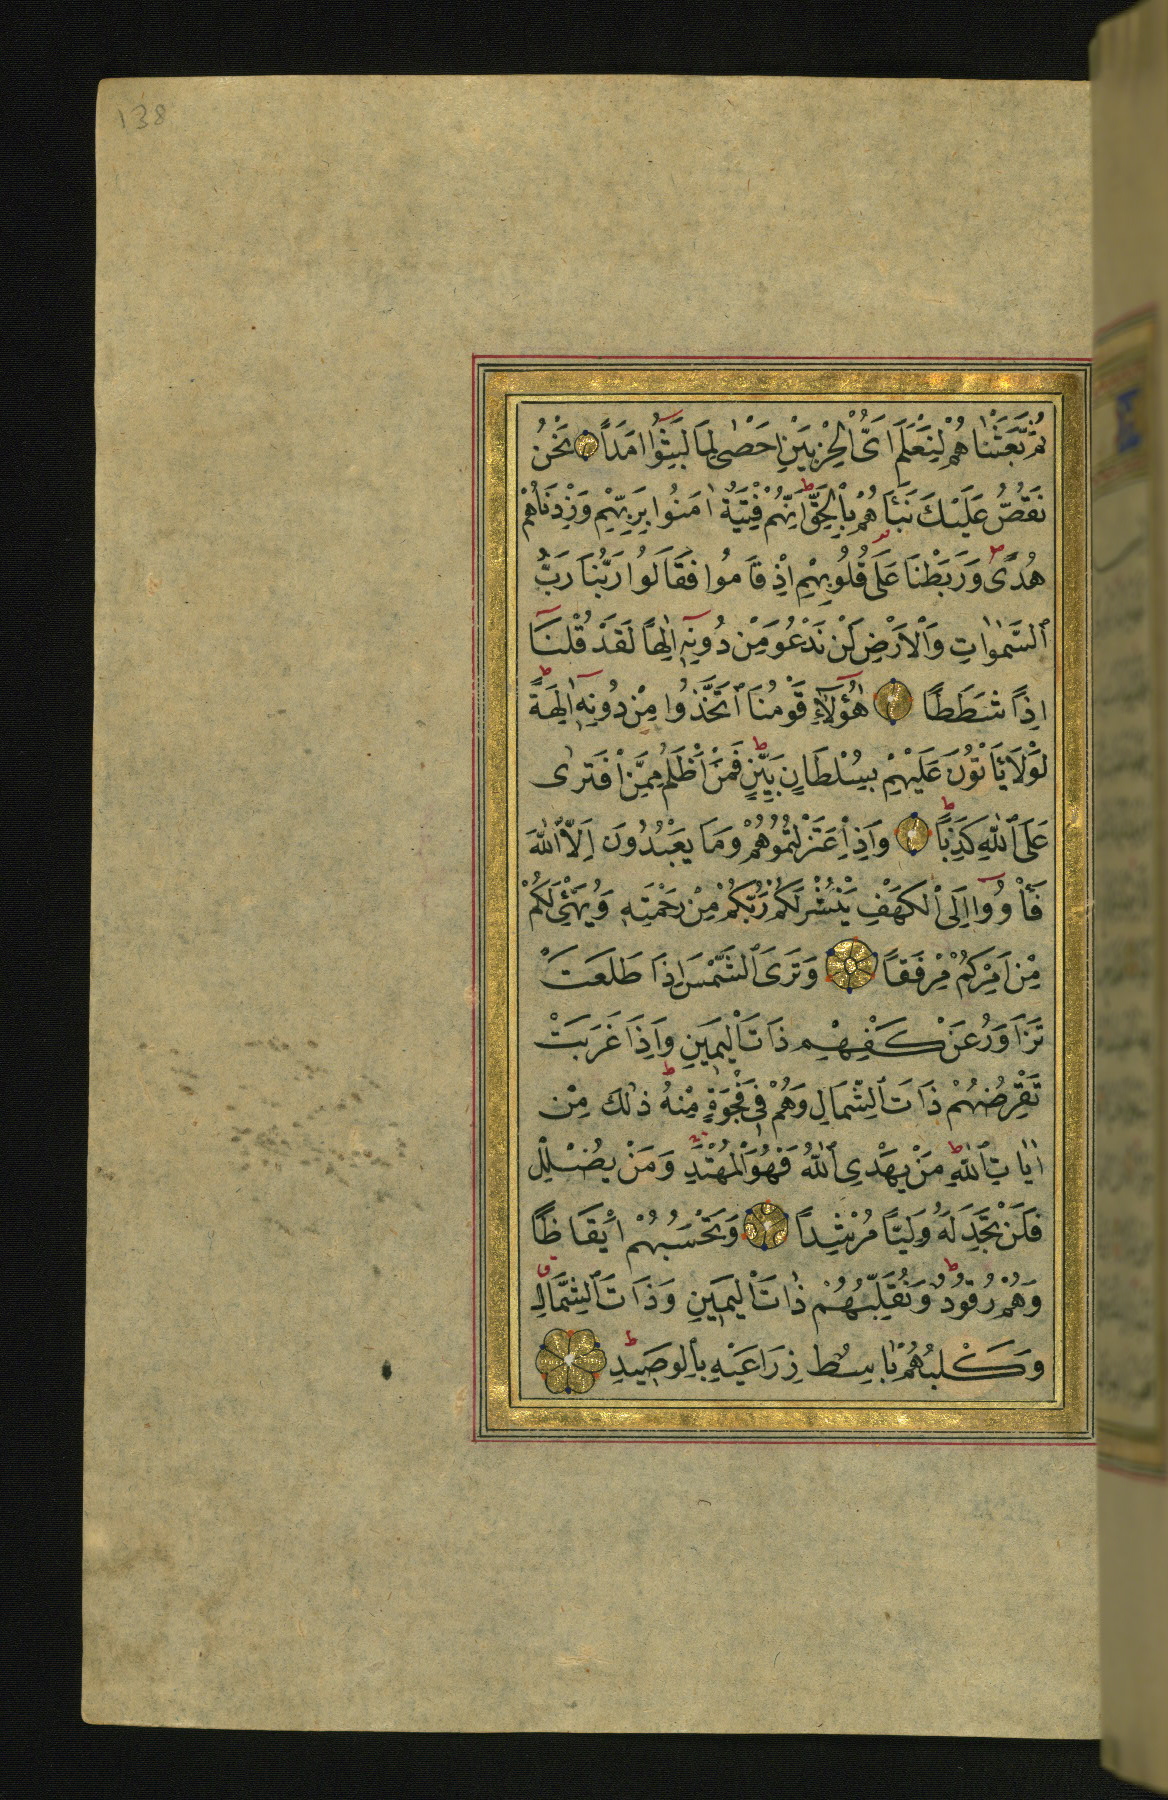 138
ثُمَّ بَعَثْنَاهُمْ لِنَعْلَمَ اَىُّ الْحِزْبَيْنِ اَحْصٰى لِمَا لَبِثُٓوا اَمَدًا نَحْنُ
نَقُصُّ عَلَيْكَ نَبَاَهُمْ بِالْحَقِّ ط اِنَّهُمْ فِتْيَةٌ اٰمَنُوا بِرَبِّهِمْ وَزِدْنَاهُمْ
هُدًى وَرَبَطْنَا عَلٰى قُلُوبِهِمْ اِذْ قَامُوا فَقَالُوا رَبُّنَا رَبُّ
السَّمٰوَاتِ وَالْاَرْضِ لَنْ نَدْعُوَ مِنْ دُونِهِٓ اِلٰهًا لَقَدْ قُلْنَٓا
اِذًا شَطَطًا هٰٓؤُلَٓاءِ قَوْمُنَا اتَّخَذُوا مِنْ دُونِهِٓ اٰلِهَةً ط
لَوْلَا يَاْتُونَ عَلَيْهِمْ بِسُلْطَانٍ بَيِّنٍ ط فَمَنْ اَظْلَمُ مِمَّنِ افْتَرٰى
عَلَى اللّٰهِ كَذِبًا ط وَاِذِ اعْتَزَلْتُمُوهُمْ وَمَا يَعْبُدُونَ اِلَّا اللّٰهَ
فَاْوُٓوا اِلَى الْكَهْفِ يَنْشُرْ لَكُمْ رَبُّكُمْ مِنْ رَحْمَتِهِ وَيُهَيِّئْ لَكُمْ
مِنْ اَمْرِكُمْ مِرْفَقًا وَتَرَى الشَّمْسَ اِذَا طَلَعَتْ
تَزَاوَرُ عَنْ كَهْفِهِمْ ذَاتَ الْيَمِينِ وَاِذَا غَرَبَتْ
تَقْرِضُهُمْ ذَاتَ الشِّمَالِ وَهُمْ فِى فَجْوَةٍ مِنْهُ ط ذٰلِكَ مِنْ
اٰيَاتِ اللّٰهِ ط مَنْ يَهْدِى اللّٰهُ فَهُوَ الْمُهْتَدِ وَمَنْ يُضْلِلْ
فَلَنْ تَجِدَ لَهُ وَلِيًّا مُرْشِدًا وَتَحْسَبُهُمْ اَيْقَاظًا
وَهُمْ رُقُودٌ ط وَنُقَلِّبُهُمْ ذَاتَ الْيَمِينِ وَذَاتَ الشِّمَالِ ق
وَكَلْبُهُمْ بَاسِطٌ ذِرَاعَيْهِ بِالْوَصِيدِ ط